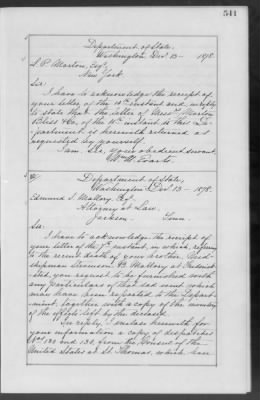 541
Department of State,
Washington, Dec. 13 — 1878.
L. P. Morton, Esqr.
New York.
Sir:
I have to acknowledge the receipt of
your letter of the instant and in reply
to state that the letter of Messrs. Morton
Bliss & Co. of the instant to this De-
partment is herewith returned as
requested by yourself.
I am, Sir, your obedient servant,
Wm. M. Evarts
Department of State,
Washington, Dec. 13 — 1878.
Edmund S. Mallory, Esqr.
Attorney at Law.
Jackson. Tenn.
Sir:
I have to acknowledge the receipt of
your letter of the 7th instant, in which, referring
to the recent death of your brother, Mid-
shipman B. Mallory at Frederick-
sted, you request to be furnished with
any particulars of that sad event which
may have been reported to the Depart-
ment, together with a copy of the inventory
of the effects left by the deceased.
In reply, I enclose herewith for
your information a copy of despatches
Nos. 130 and 132, from the Consul of the
United States at St. Thomas, which have